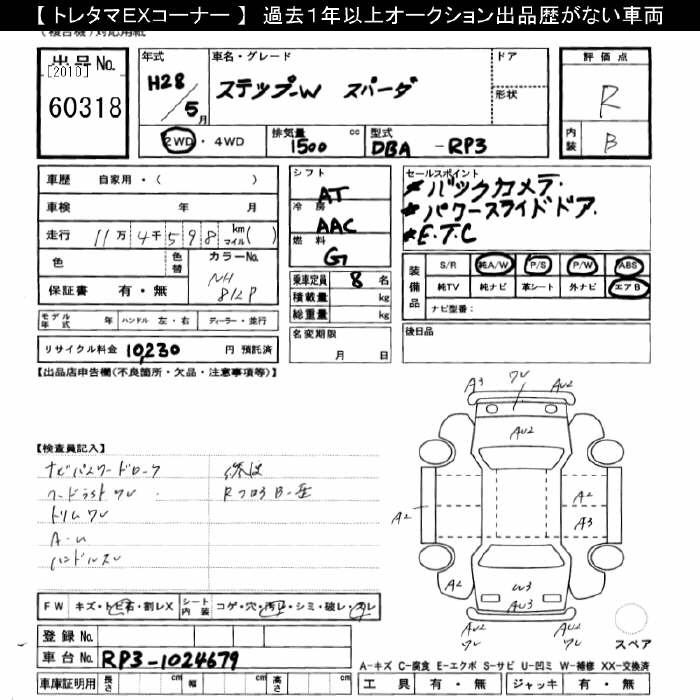 【 トレタマEXコーナー 】 過去1年以上オークション出品歴がない車両
出品No.
[2010]
60318
年式
H28/5月
車名・グレード
ステップーW スパーダ
ドア
形状
評価点
R
内装
B
2WD・4WD
排気量 1500 cc
型式 DBA - RP3
車歴 自家用・( )
車検 年 月
走行 11万4千598 km マイル( )
色
色替
カラーNo.
NH
812P
保証書 有・無
モデル年式 年 ハンドル 左・右 ディーラー・並行
リサイクル料金 10,230 円 預託済
シフト
AT
冷房
AAC
燃料
G
乗車定員 8 名
積載量 kg
総重量 kg
名変期限
月 日
セールスポイント
★バックカメラ.
★パワースライドドア.
★E.T.C
装備品
S/R 純A/W P/S P/W ABS
純TV 純ナビ 革シート 外ナビ エアB
ナビ型番:
後日品
【出品店申告欄(不良箇所・欠品・注意事項等)】
【検査員記入】
ナビパスワードロック
トリム ワレ
ハンドルスレ
A3 ワレ AU2
AU2
A2
A3
A2
A2
W3
AU3
AU2 ワレ
AU2 ワレ
スペア
FW キズ・トビ石・割レX
シート内装 コゲ・穴・汚レ・シミ・破レ・スレ
登録No.
車台No. RP3-1024679
車庫証明用 長さ cm 幅 cm 高さ cm
A-キズ C-腐食 E-エクボ S-サビ U-凹ミ W-補修 XX-交換済
工具 有・無 ジャッキ 有・無